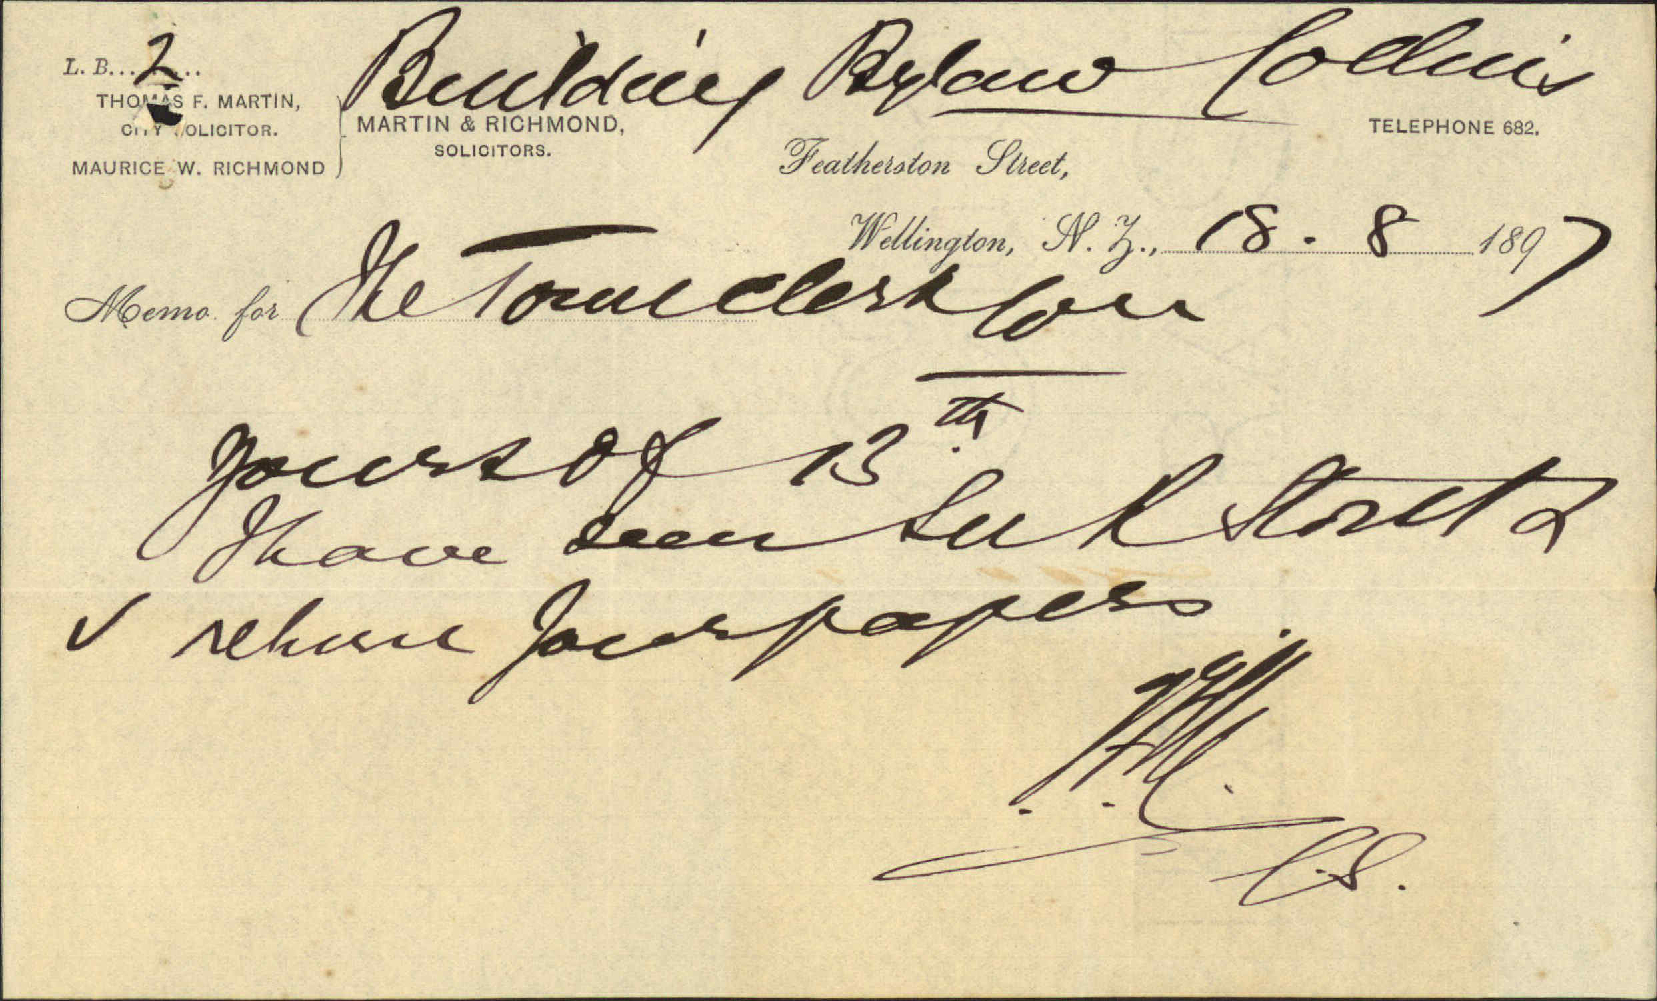 L. B. 2
Building Bylaw Collins
THOMAS F. MARTIN,
CITY SOLICITOR.
MAURICE W. RICHMOND
MARTIN & RICHMOND,
SOLICITORS.
TELEPHONE 682.
Featherston Street,
Wellington, N. Z., 18 . 8 1897
Memo for The Town Clerk
Yours of 13th
I have seen Sub &
return your papers
C.S.